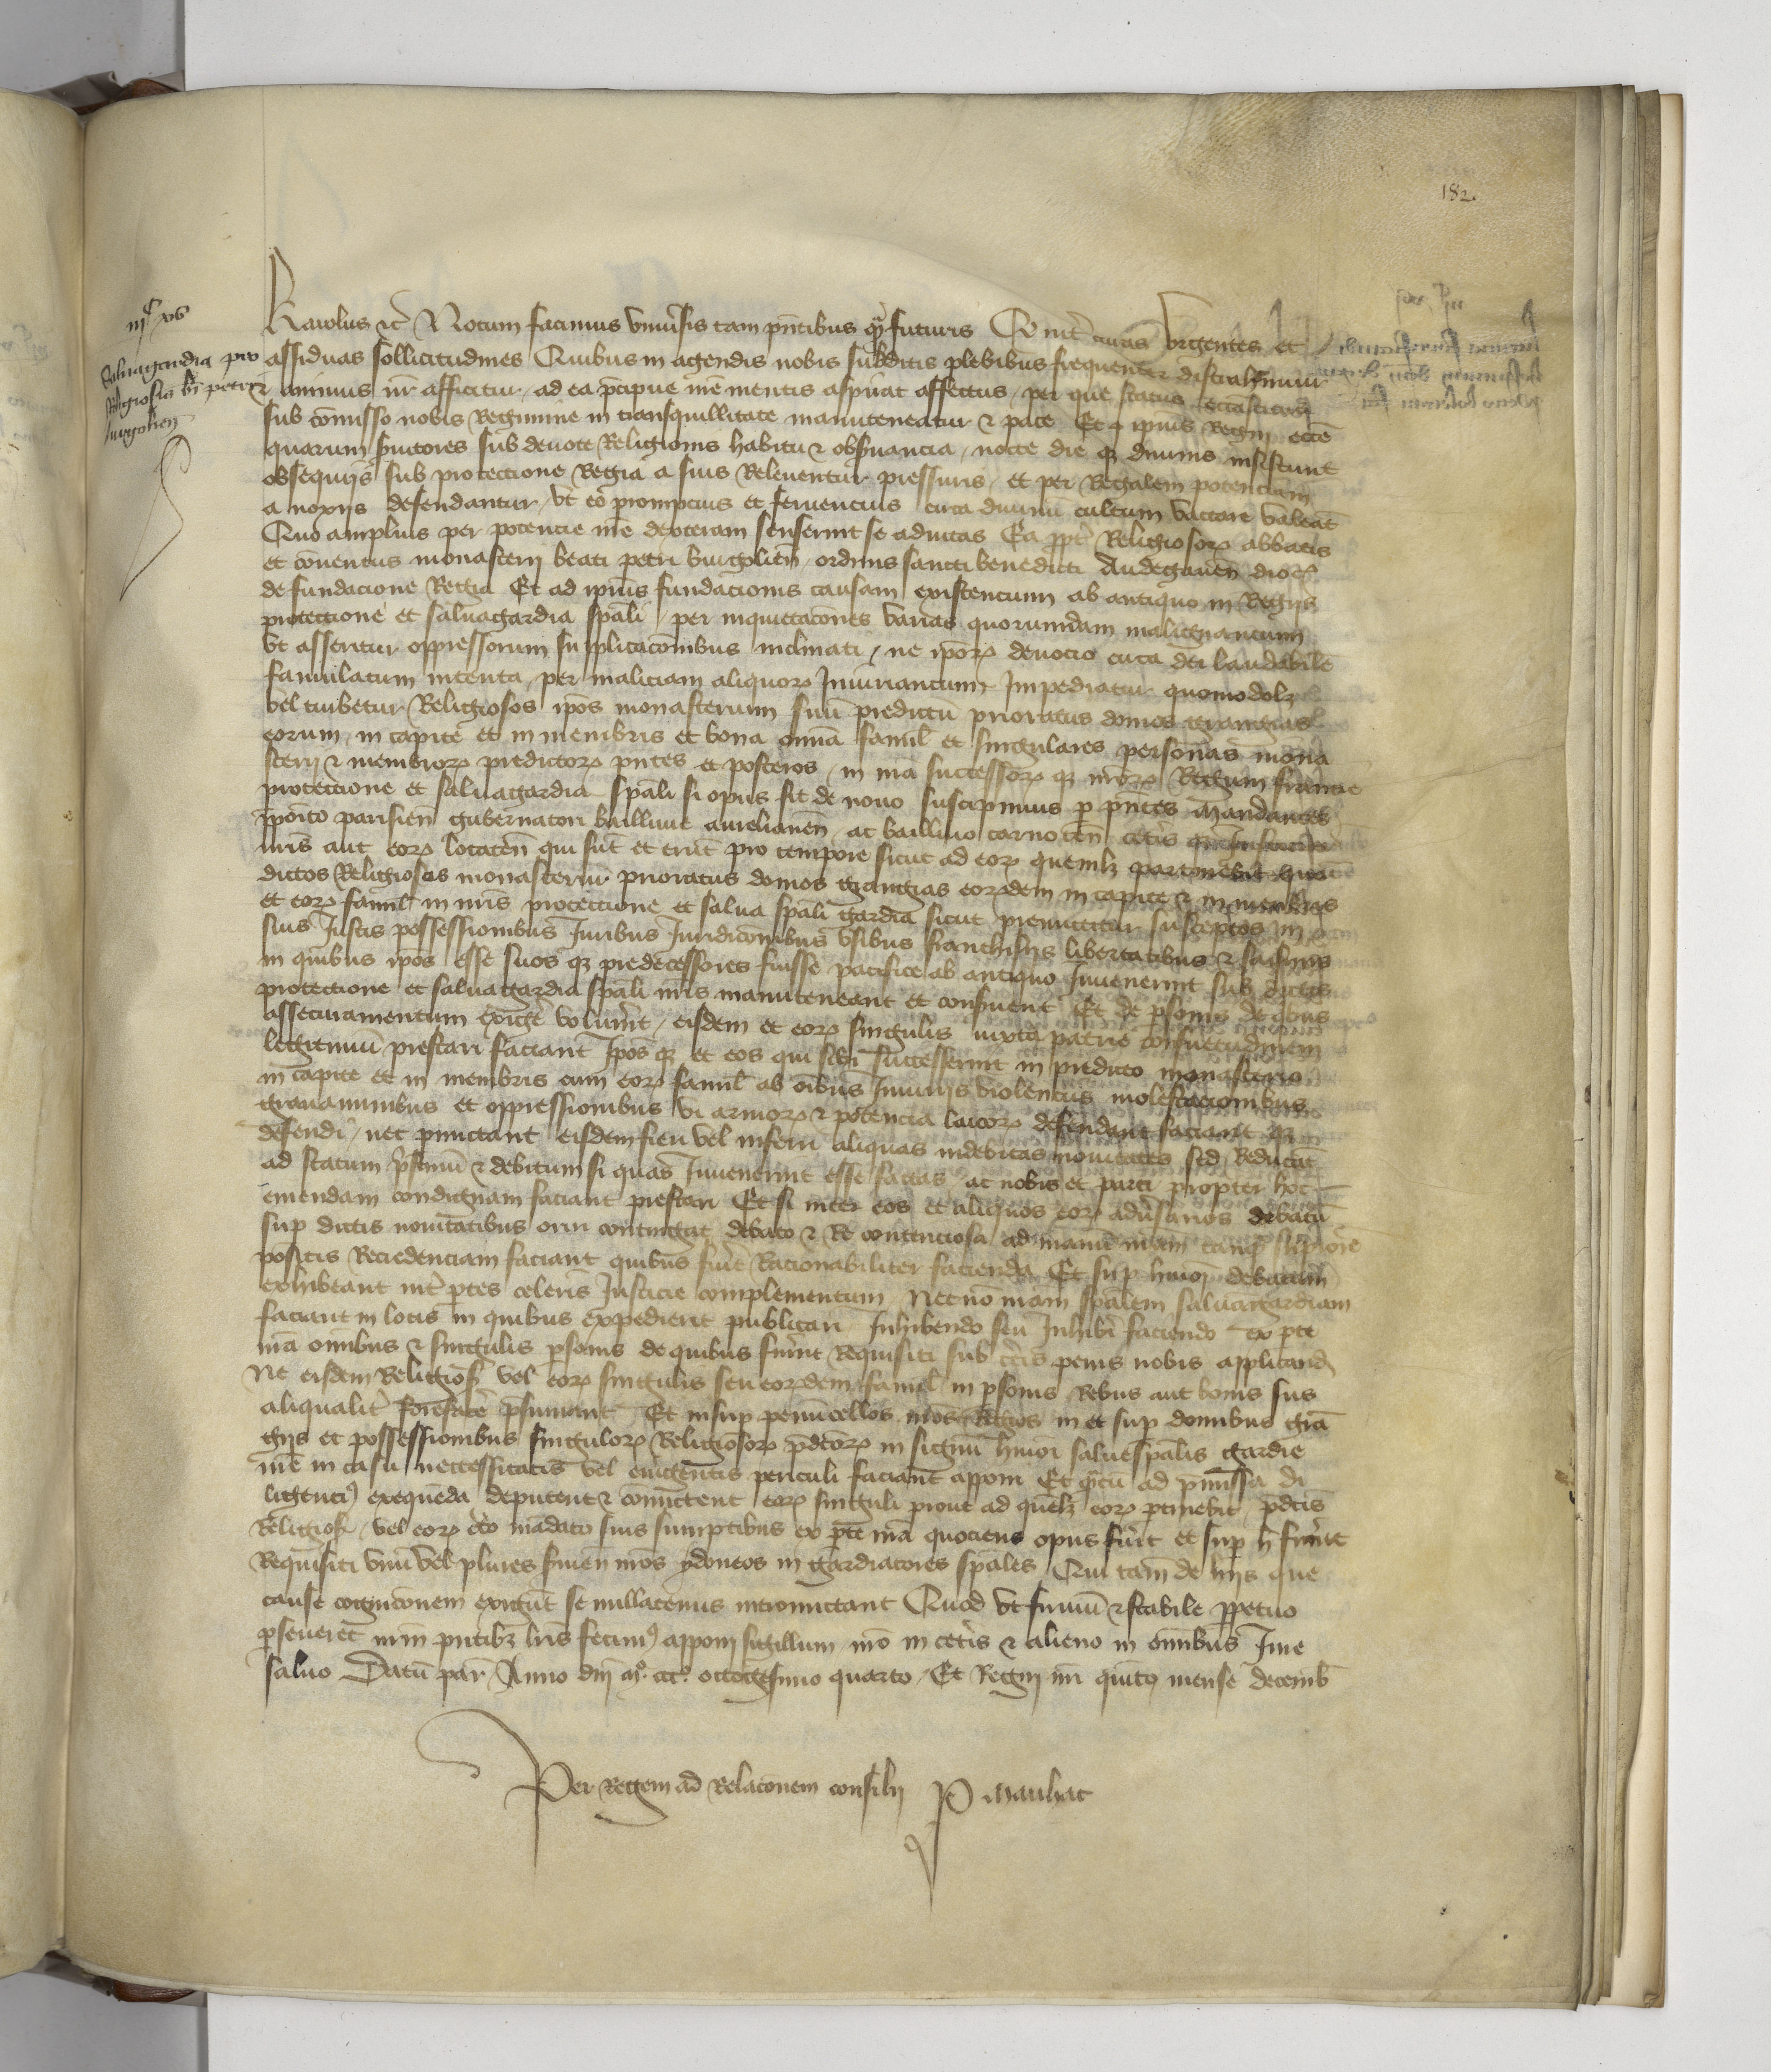 182.
iijc xvi
Salvagardia pro
Religiosis bi petri
burgolien
Karolus etc Notum facimus universis tam pntibus qm futuris Qd int curas urgentes et
assiduas sollicitudines Quibus in agendis nobis subditis plebibus frequenter distrahimur
& animus nr afficitur, ad ea pcipue nre mentis aspirat affectus, per que status eccasticus
sub comisso nobis Regimine in transquillitate manuteneatur & pace Et ipius Regni eccie
quarum svitores sub devote Religionis habitu & obsvancia, nocte die q divinis insistunt
obsequiis sub protectione Regia a suis Releventur pressuris, et per Regalem potenciam
a noxiis defendantur, ut eo prompcius et fervencius circa divinu cultum vaccare valeat
Quo amplius per potencie nre dexteram senserint se adiutas Ea ppt Religiosor abbatis
et conventus monasterii beati petri burgolien, ordinis sancti benedicti Andegaven dioc
de fundacione Regia Et ad ipius fundacionis causam existencium ab antiquo in Regiis
protectione et salvagardia spali, per inquietacones varias quorumdam malignancium
ut asseritur oppressorum supplicaconibus inclinati, ne ipor devocio circa dei laudabile
famulatum intenta, per maliciam aliquor Iniuriancium Impediatur quomodolz
vel turbetur Religiosos ipos monasterium suu predictu prioratus domos grangias
eorum, in capite et in membris et bona omia famil et singulares personas mona
sterii & membror predictor pntes et posteros, in nra successor q nror Regum francie
protectione et salvagardia spali si opus sit de novo suscipimus p pntes Mandantes
pposito parisien gubernatori baillivie aurelianen, ac baillivo carnoten cetis q Iusticiar
nris aut eor locaten qui sut et erut pro tempore sicut ad eor quemlz partinebit
dictos Religiosos monasteriu prioratus domos grangias eordem in capite & in membris
et eor famil in nris protectione et salva spali gardia sicut premittitur susceptos in
suis Iustis possessionibus Iuribus Iuridiconibus usibus franchisiis libertatibus & saisinis
in quibus ipos esse suos q predecessores fuisse pacifice ab antiquo Invenerint sub dictis
protectione et salvagardia spali nris manuteneant et consvent Et de psonis de qbus
assecuramentum exige volunt, eisdem et eor singulis iuxta patrie consuetudinem
legitimu prestari faciant Ipos q et eos qui sibi successerint in predicto monasterio
in capite et in membris cum eor famil ab oibus Iniuriis violentiis molestacionibus
gravaminibus et oppressionibus vi armor & potencia laicor defendant faciant q
defendi, nec pmittant eisdem fieri vel inferri aliquas indebitas novitates sed Reducat
ad statum pstinu & debitum si quas Invenerint esse factas ac nobis et parti propter hoc
emendam condignam faciant prestari Et si inter eos et aliquos eor adusarios debatu
sup dictis novitatibus oriri contingat debato & Re contenciosa ad manu nram tanq supiore
positis Recredenciam faciant quibus fuit Racionabiliter facienda Et sup huioi debatum
exhibeant int ptes celeris Iusticie complementum Necno nram spalem salvamgardiam
faciant in locis in quibus expedierit publicari Inhibendo seu Inhibi faciendo ex pte
nra omibus & singulis psonis de quibus fuint Requisiti sub ctis penis nobis applicand
Ne eisdem Religios vel eor singulis seu eordem famil in psonis Rebus aut bonis suis
aliqualit forefacere psumant Et insup penuncellos nros Regios in et sup domibus gra
giis et possessionibus singulor Religiosor pdcor in signu huioi salvespalis gardie
nre in casu neccessitatis vel evigentis periculi faciant apponi Et qm cu ad pmissa di
ligenti exequeda deputent & comittent eor singuli prout ad quelz eor ptinebit pdcis
Religios, vel eor cto madato suis sumptibus ex pte nra quociens opus fuit et sup h fuint
Requisiti unu vel plures svien nros ydoneos in gardiatores spales Qui tam de hiis que
cause cognicionem exigut se nullatenus intromittant Quod ut firmu & stabile ppetuo
pseveret nrm pntibz lris fecim apponi sigillum nro in cetis & alieno in omibus Iure
salvo Datu par Anno dni mo ccco octogesimo quarto, Et Regni nri quito mense decemb
Per Regem ad Relaconem consilii P Mauhac